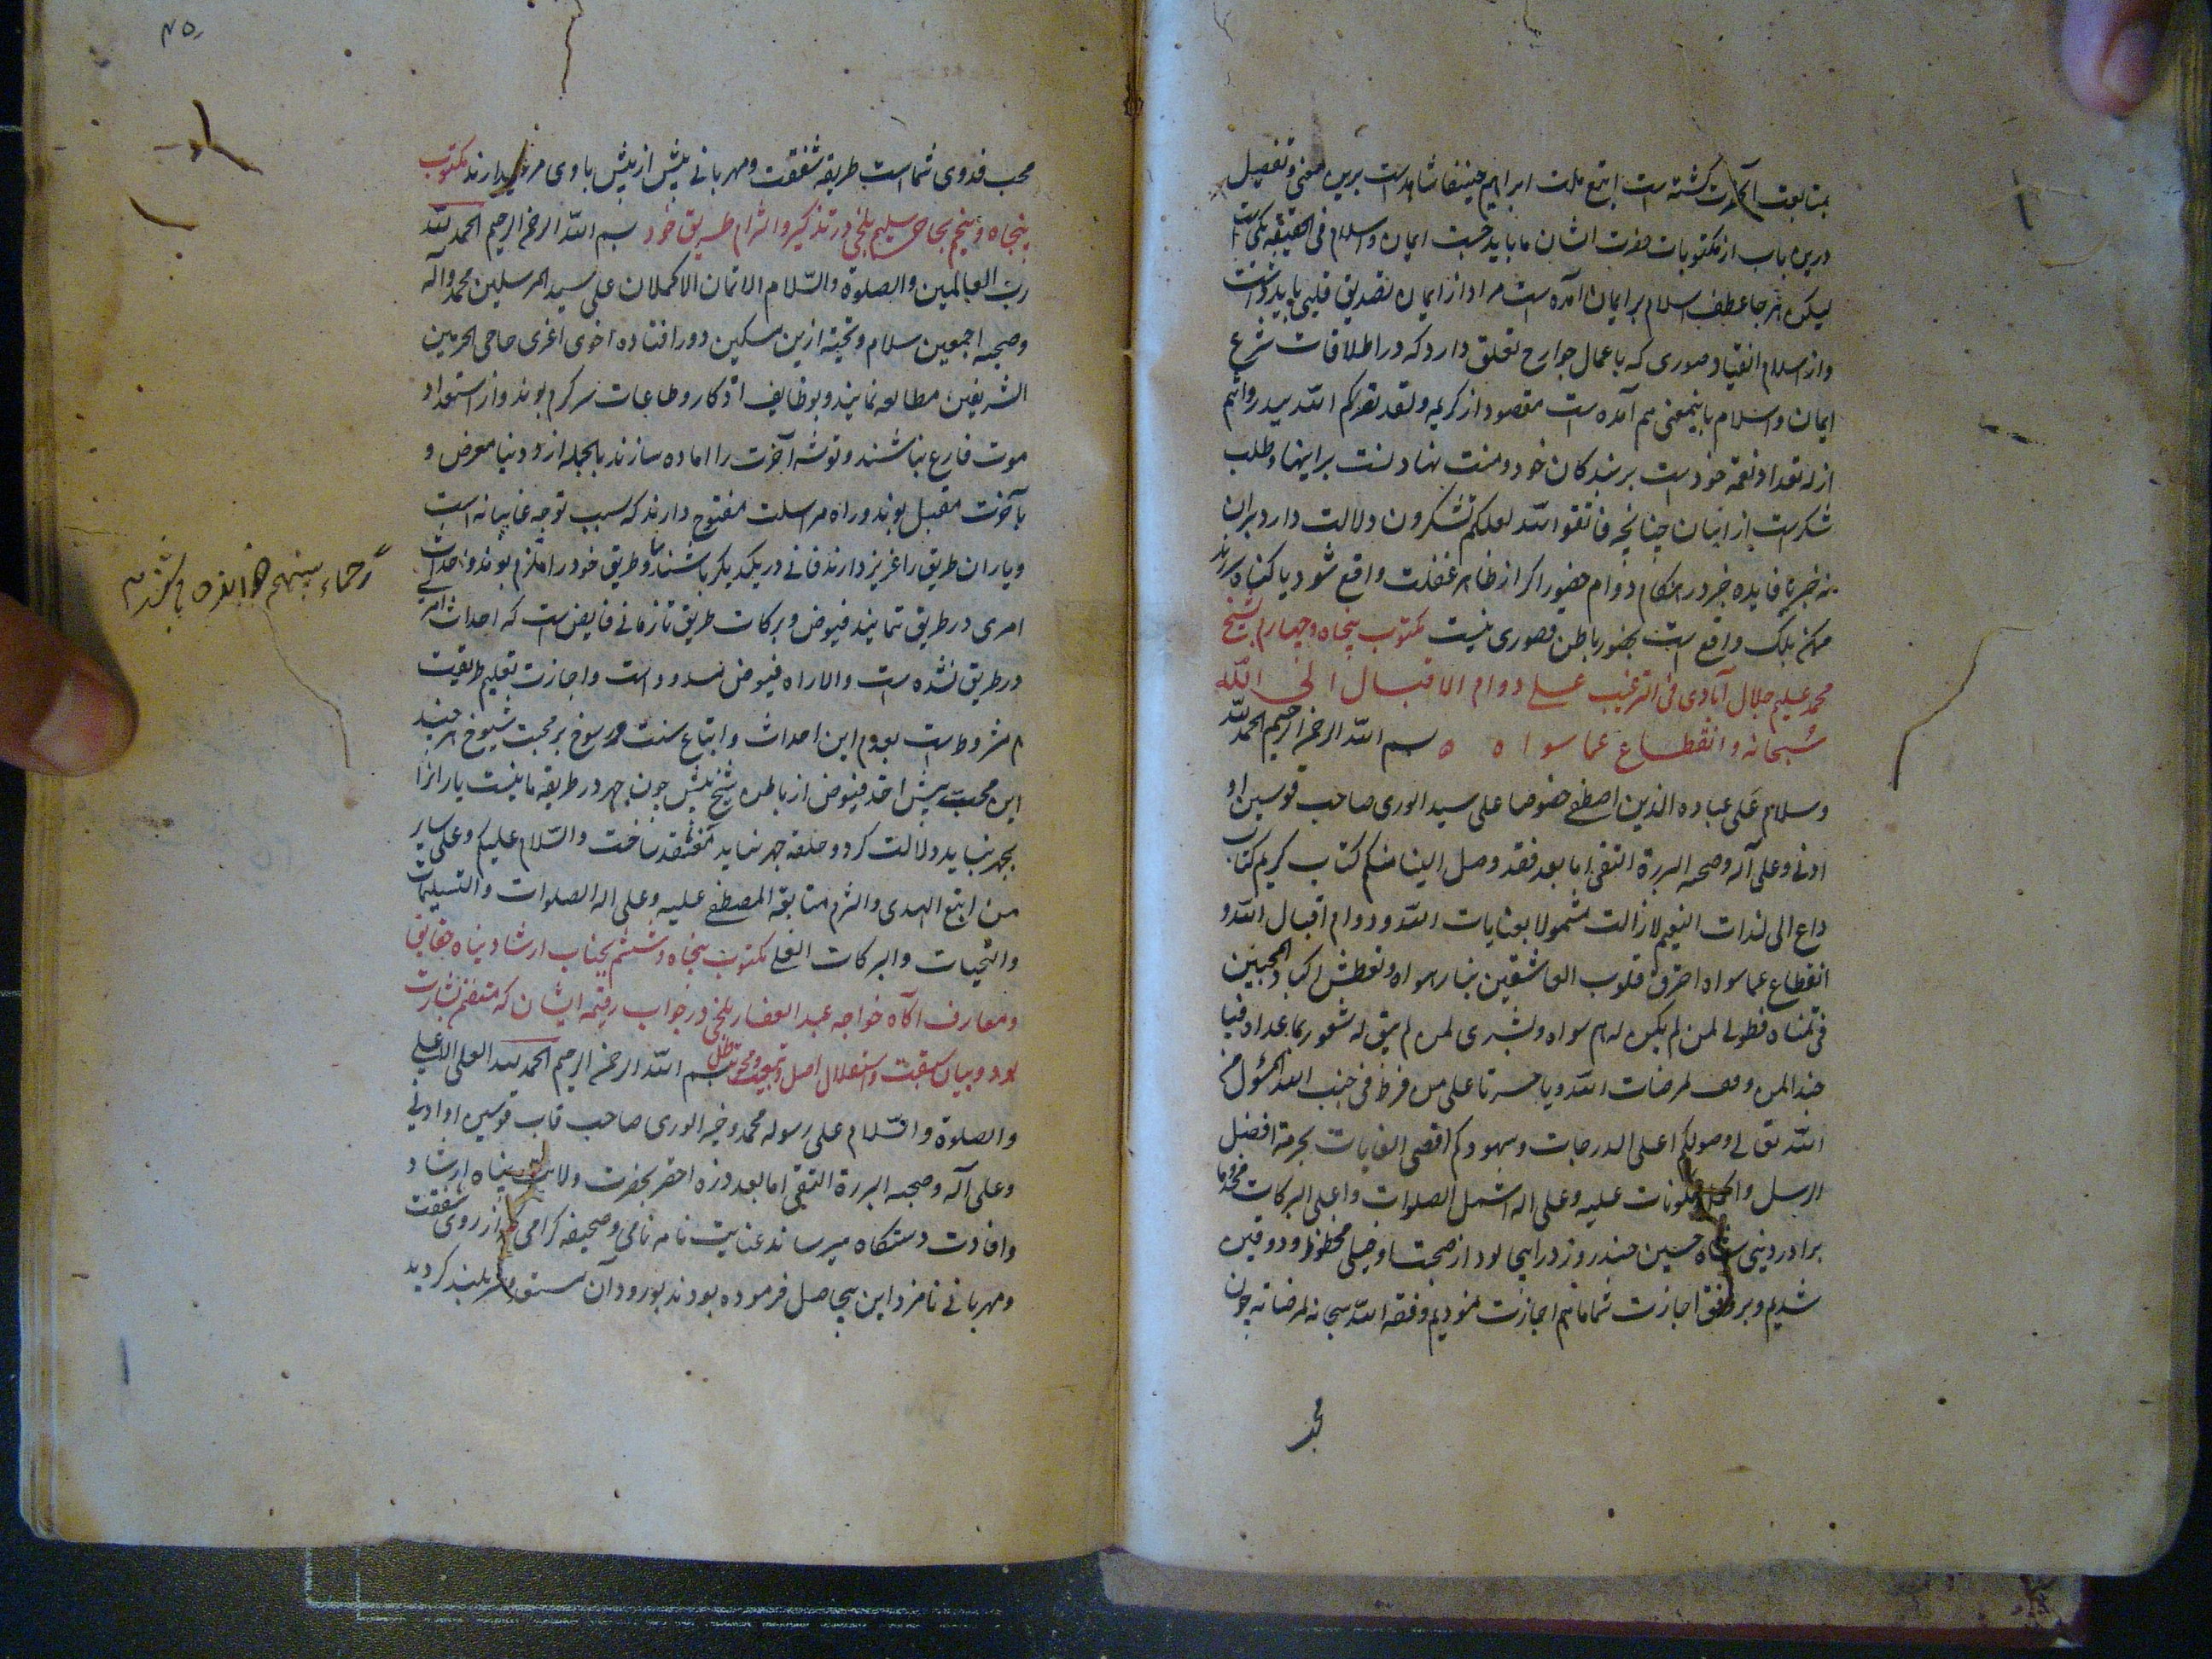 بمتابعت آنحضرت گشته است اتبع ملت ابراهیم حنیفا شاهد است برین معنی و تفصیل
درین باب از مکتوبات حضرت ایشان ما باید جست ایمان و اسلام فی الحقیقه یکی است
لیکن هر جا عطف اسلام بر ایمان آمده است مراد از ایمان تصدیق قلبی باید داشت
و از اسلام انقیاد صوری که باعمال جوارح تعلق دارد که در اطلاقات شرع
ایمان و اسلام باینمعنی هم آمده است مقصود از کریمه ولقد نصرکم الله ببدر وانتم
اذله تعداد نعمة خود است بر بندکان خود و منت نهادنست بر اینها و طلب
شکرست از ایشان چنانچه فاتقوا الله لعلکم تشکرون دلالت دارد بران
نه خبر تا فایده خبر در هنکام دوام حضور اکر از ظاهر غفلت واقع شود یا کناه سر زند
ممکن بلک واقع است بحضور باطن قصوری نیست مکتوب پنجاه و چهارم بشیخ
محمد علیم جلال آبادی فی الترغیب علی دوام الاقبال الی الله
سبحانه وانقطاع عما سواه بسم الله الرحمن الرحیم الحمد لله
وسلام علی عباده الذین اصطفی خصوصا علی سید الوری صاحب قوسین او
ادنی وعلی آله وصحبه البررة التقی اما بعد فقد وصل الینا منکم کتاب کریم کتاب
داع الی لذات النعیم لا زالت مشمولا بعنایات الله ودوام اقبال الله و
انقطاع عما سواه احترق قلوب العاشقین بنار هواه وتعطش اکباد المحبین
فی تمناه فطوبی لمن لم یکن له هم سواه وبشری لمن لم یبق له شعور بما عداه فیا
حبذا لمن وفق لمرضات الله ویا حسرتا علی من فرط فی جنب الله المسئول من
الله تعالی وصولکم اعلی الدرجات وشهودکم اقصی الغایات بحرمة افضل
الرسل واکمل المکونات علیه وعلی اله اشمل الصلوات واعلی البرکات مخدوما
برادر دینی شاه حسین چند روز در اینجا بود از صحبتها و خیلی محظوظ و ذوقین
شدیم و بر طبق اجازت شما ما هم اجازت نمودیم وفقه الله سبحانه لمرضاته چون
محب
۴۵
محب فدوی شما است طریقه شفقت و مهربانی بیش از بیش با وی مرعی دارند مکتوب
پنجاه و پنجم بحاجی سلیم بلخی در تذکیر و التزام طریق خود بسم الله الرحمن الرحیم الحمد لله
رب العالمین والصلوة والسلام الاتمان الاکملان علی سید المرسلین محمد وآله
وصحبه اجمعین سلام و تحیة ازین مسکین دور افتاده اخوی اعزی حاجی الحرمین
الشریفین مطالعه نمایند و بوظایف اذکار و طاعات سرکرم بوند و از استعداد
موت فارغ نباشند و توشه آخرت را اماده سازند بالجمله از دنیا معرض و
بآخرت مقبل بوند و راه مراسلت مفتوح دارند که سبب توجه غایبانه است
و یاران طریق را عزیز دارند فانی در یکدیکر باشند و طریق خود را ملتزم بوند و احداث
امری در طریق ننمایند فیوض و برکات طریق تا زمانی فایض است که احداث امر
در طریق نشده است والا راه فیوض مسدود است و اجازت تعلیم طریقت
مشروط است بعدم این احداث و اتباع سنت و رسوخ بر محبت شیوخ هر چند
این محبت بیش اخذ فیوض از باطن شیخ بیش چون جهر در طریقه ما نیست یارانرا
بجهر نباید دلالت کرد و حلقه جهر نباید منعقد ساخت والسلام علیکم وعلی سایر
من اتبع الهدی والتزم متابعة المصطفی علیه وعلی اله الصلوات والتسلیمات
والتحیات والبرکات العلی مکتوب پنجاه و ششم بجناب ارشاد پناه حقایق
و معارف آکاه خواجه عبد الغفار بلخی در جواب رقیمه ایشان که متضمن بشارت
بود و بیان سبقت و استقلال اصل و تبعیت و محویت ظل بسم الله الرحمن الرحیم الحمد لله العلی الاعلی
والصلوة والسلام علی رسوله محمد خیر الوری صاحب قاب قوسین او ادنی
وعلی آله وصحبه البررة التقی اما بعد ذره احقر بحضرت ولایت پناه ارشاد
و افادت دستکاه میرساند عنایت نامه نامی و صحیفه کرامی که از روی شفقت
و مهربانی نامزد این بیحاصل فرموده بودند بورود آن سربلند کردید
رحماء بینهم